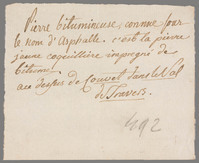 Pierre bitumineuse, connue sous
le nom d'Asphalte. c'est la pierre
jaune coquillière impregné de
bitume.
au dessus de Couvet dans le Val
de Travers.
492